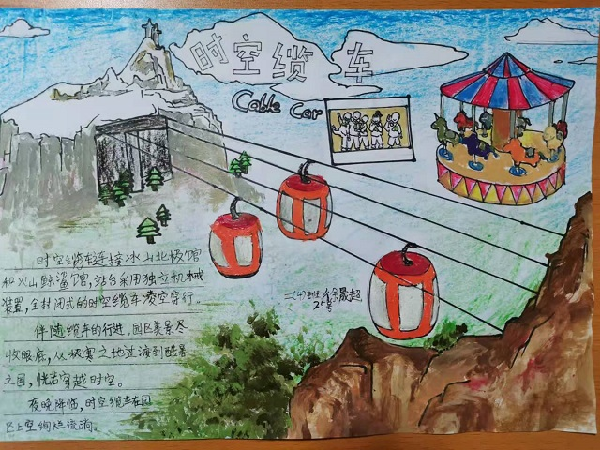 时空缆车
Cable Car
二(4)班 余晟超
28号
时空缆车连接冰山北极馆
和火山鲸鲨馆,站台采用独立机械
装置,全封闭式的时空缆车凌空穿行。
伴随缆车的行进,园区美景尽
收眼底,从极寒之地过渡到酷暑
之国,恍若穿越时空。
夜晚降临,时空缆车在园
区上空绚烂